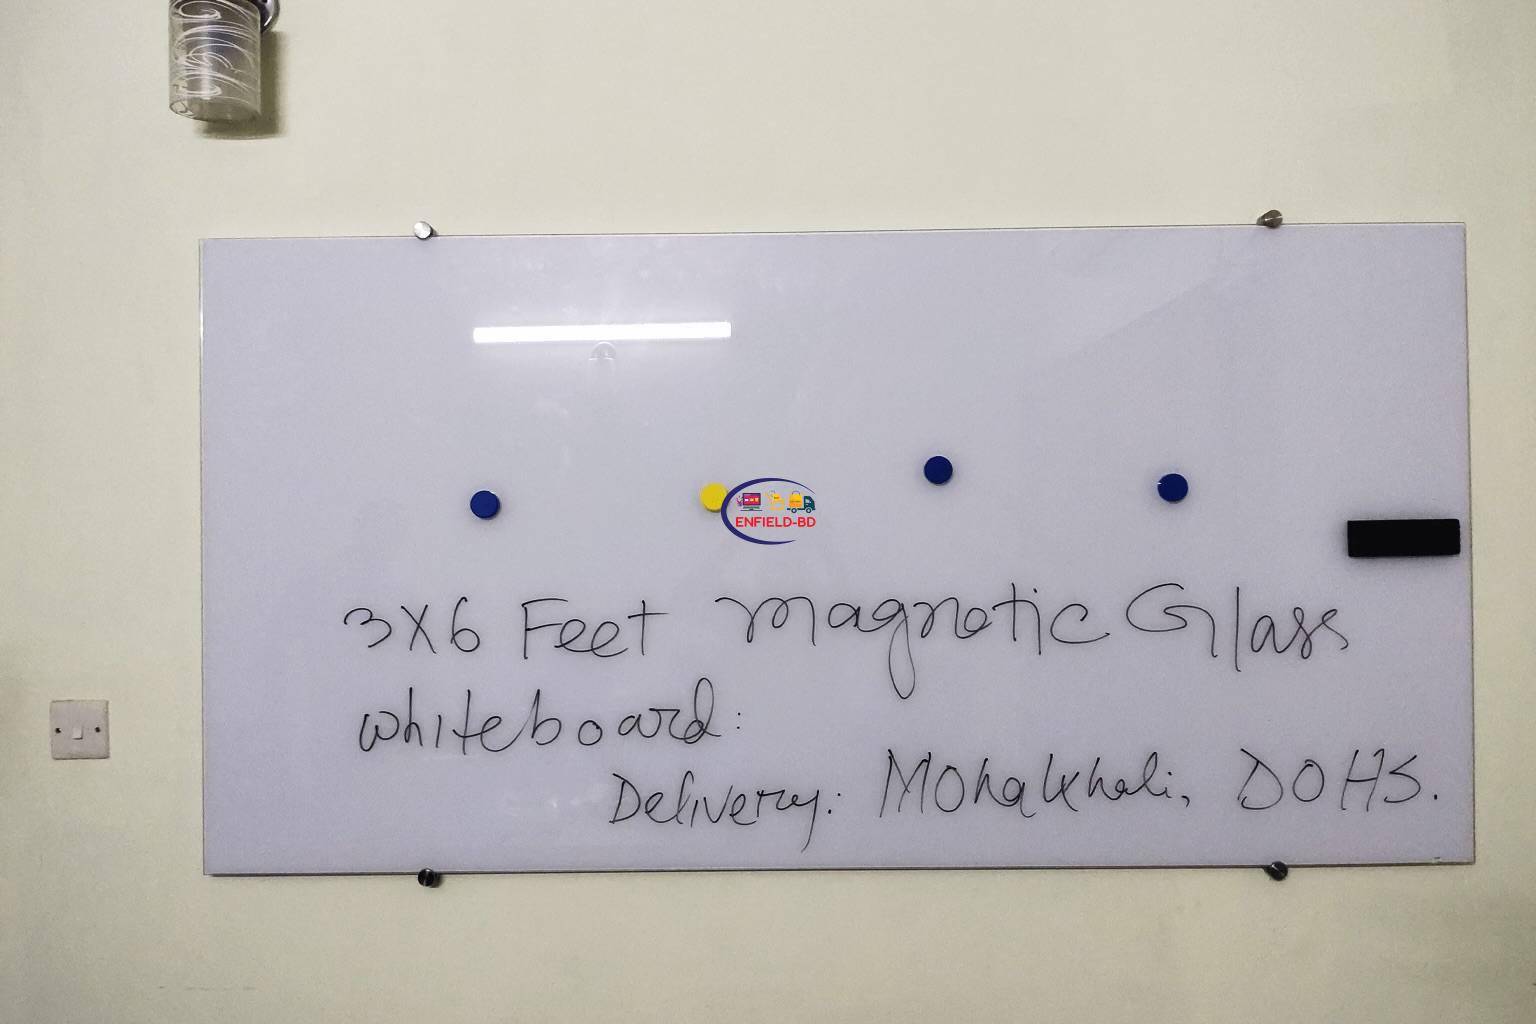 ENFIELD-BD
3X6 Feet magnetic Glass
whiteboard:
Delivery: Mohakhali, DOHS.